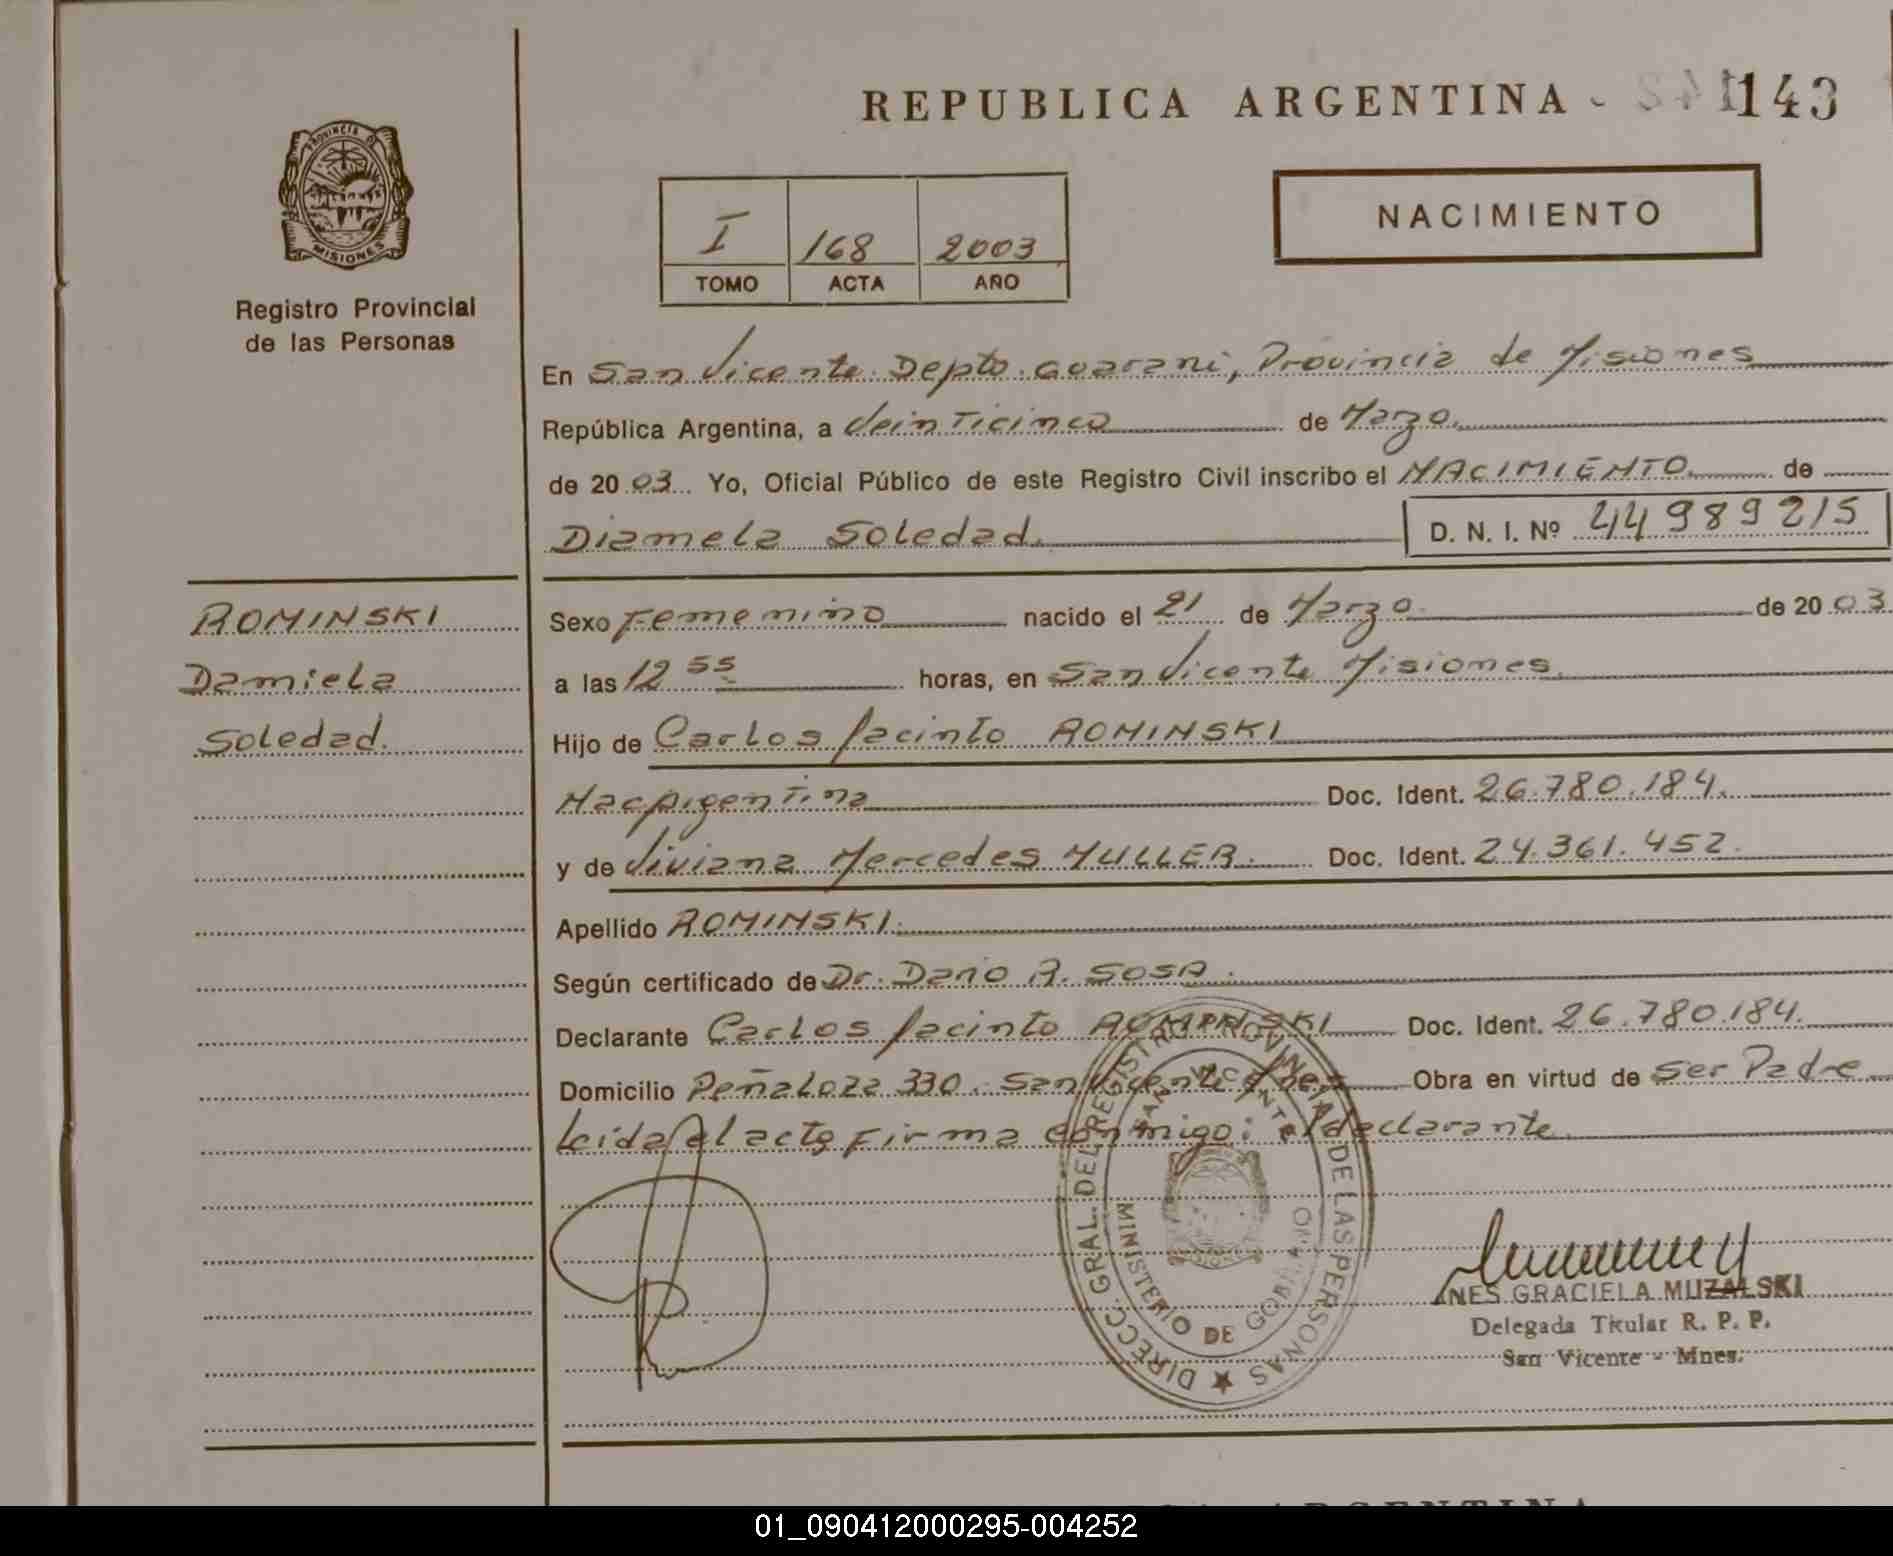 REPUBLICA ARGENTINA - 143
PROVINCIA D
MISIONES
Registro Provincial
de las Personas
NACIMIENTO
I 168 2003
TOMO ACTA AÑO
En San Vicente Depto. Guarani, Provincia de Misiones
República Argentina, a Veinticinco de Marzo.
de 2003 Yo, Oficial Público de este Registro Civil inscribo el NACIMIENTO de
Diamela Soledad. D. N. I. Nº 44989215
ROMINSKI
Damiela
Soledad.
Sexo Femenino nacido el 21 de Marzo de 2003
a las 12 55 horas, en San Vicente Misiones.
Hijo de Carlos Jacinto ROMINSKI
Doc. Ident. 26.780.184.
y de Viviana Mercedes MULLER. Doc. Ident. 24.361.452.
Apellido ROMINSKI.
Según certificado de Dr. Dario R. SOSA.
Declarante Carlos Jacinto ROMINSKI Doc. Ident. 26.780.184.
Domicilio Peñaloza 330. San Vicente Mnes Obra en virtud de Ser Padre
Leida el acta firma conmigo: el declarante.
DIRECC. GRAL. DEL REGISTRO PROVINCIAL DE LAS PERSONAS
SAN VICENTE
MINISTERIO DE GOBIERNO
INES GRACIELA MUZALSKI
Delegada Titular R. P. P.
San Vicente - Mnes.
ARGENTINA
01_090412000295-004252